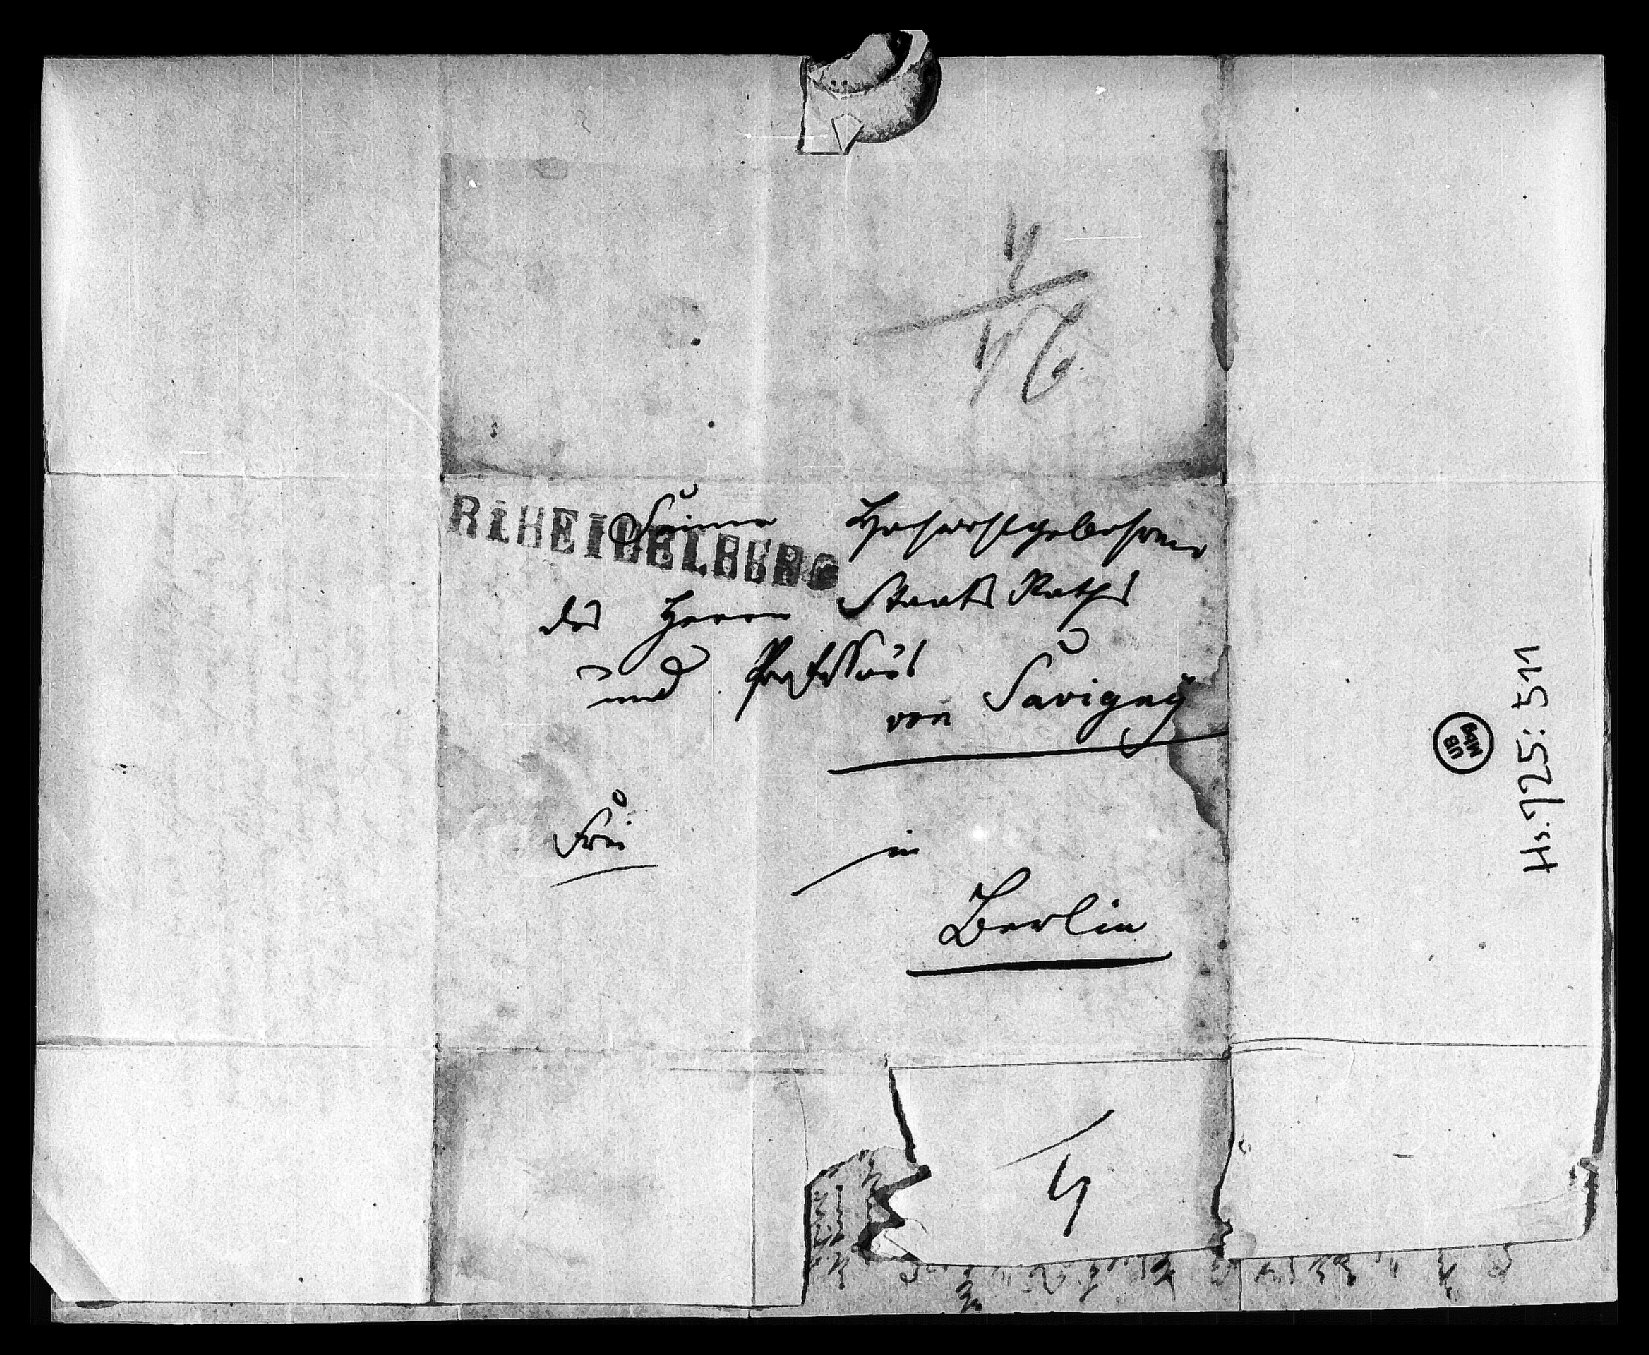 4
46
R1HEIDELBERG
Seiner Hochwohlgebohren
des Herrn Staats Raths
und Professors
von Savigny
Frei
in
Berlin
4
UB
Mbg
Hs. 725: 511